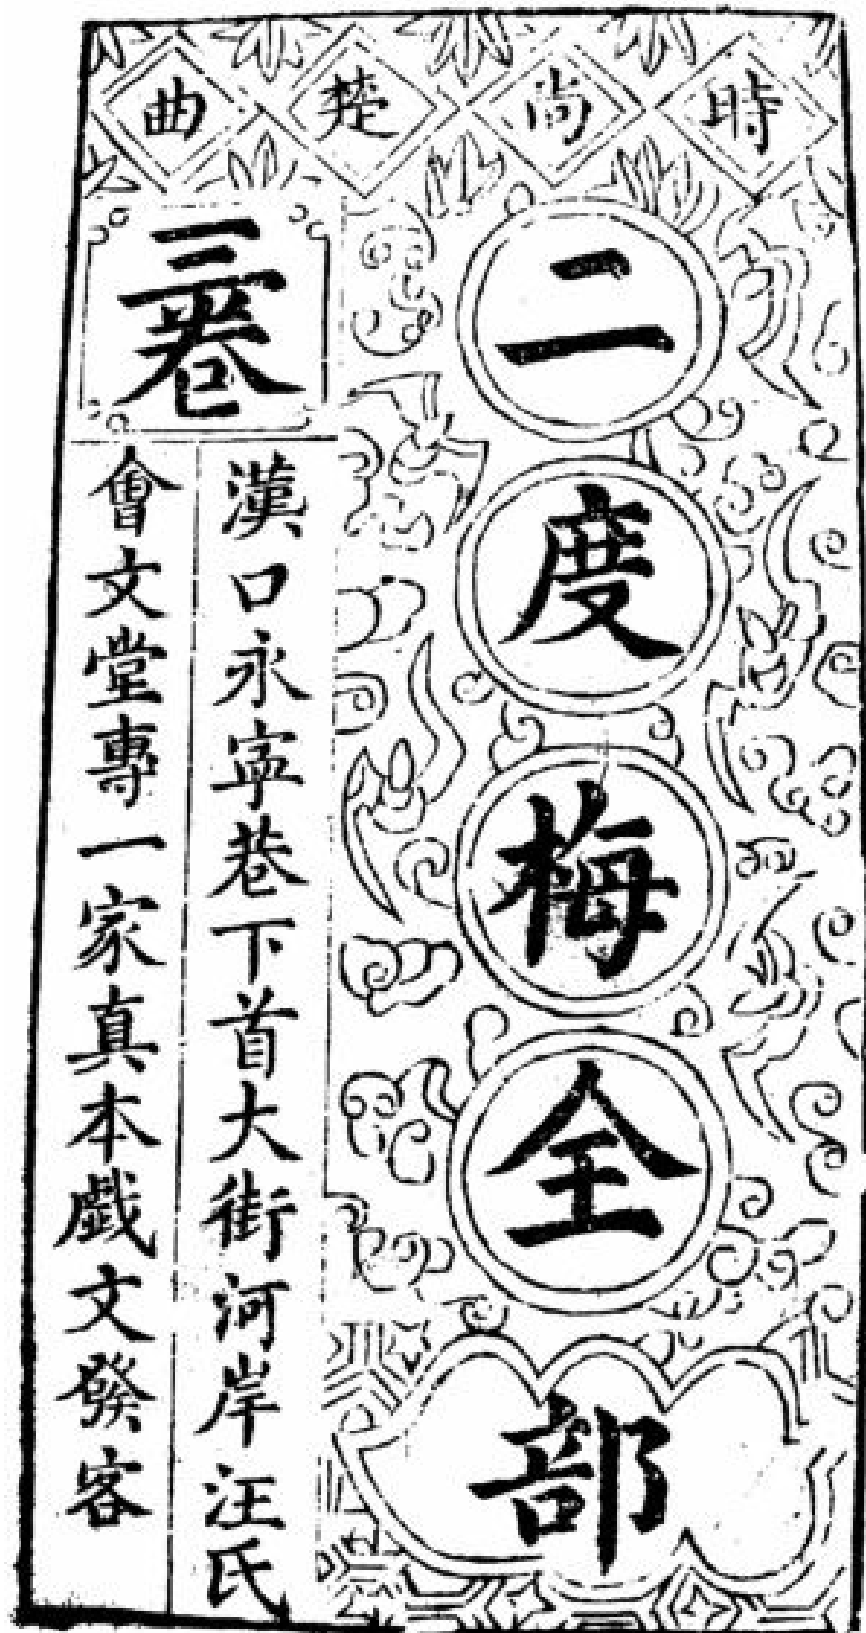 時尚楚曲
二度梅全部
三卷
漢口永寧巷下首大街河岸汪氏
會文堂專一家真本戲文發客